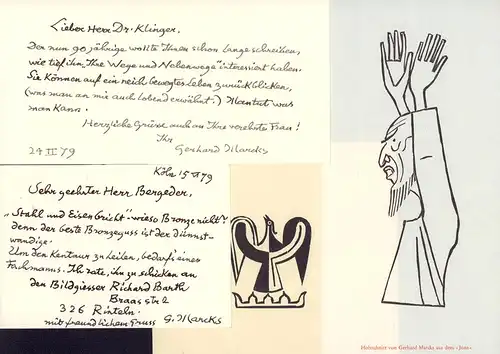 Lieber Herr Dr. Klinger,
Der nun 90 jährige wollte Ihnen schon lange schreiben,
wie tief ihn „Ihre Wege und Nebenwege" interessiert haben.
Sie können auf ein reich bewegtes Leben zurückblicken,
(was man an mir auch lobend erwähnt.) Man tut was
man kann.
Herzliche Grüsse auch an Ihre verehrte Frau!
Ihr
24 II 79 Gerhard Marcks
Köln 15 VI 79
Sehr geehrter Herr Bergeder,
„Stahl und Eisen bricht" - wieso Bronze nicht?
denn der beste Bronzeguss ist der dünnst-
wandige.
Um den Kentaur zu heilen, bedarf's eines
Fachmanns. Ihr rate, ihn zu schicken an
den Bildgiesser Richard Barth
Braas str 2
326 Rinteln.
mit freundlichem Gruss G. Marcks
Holzschnitt von Gerhard Marcks aus dem »Jona«